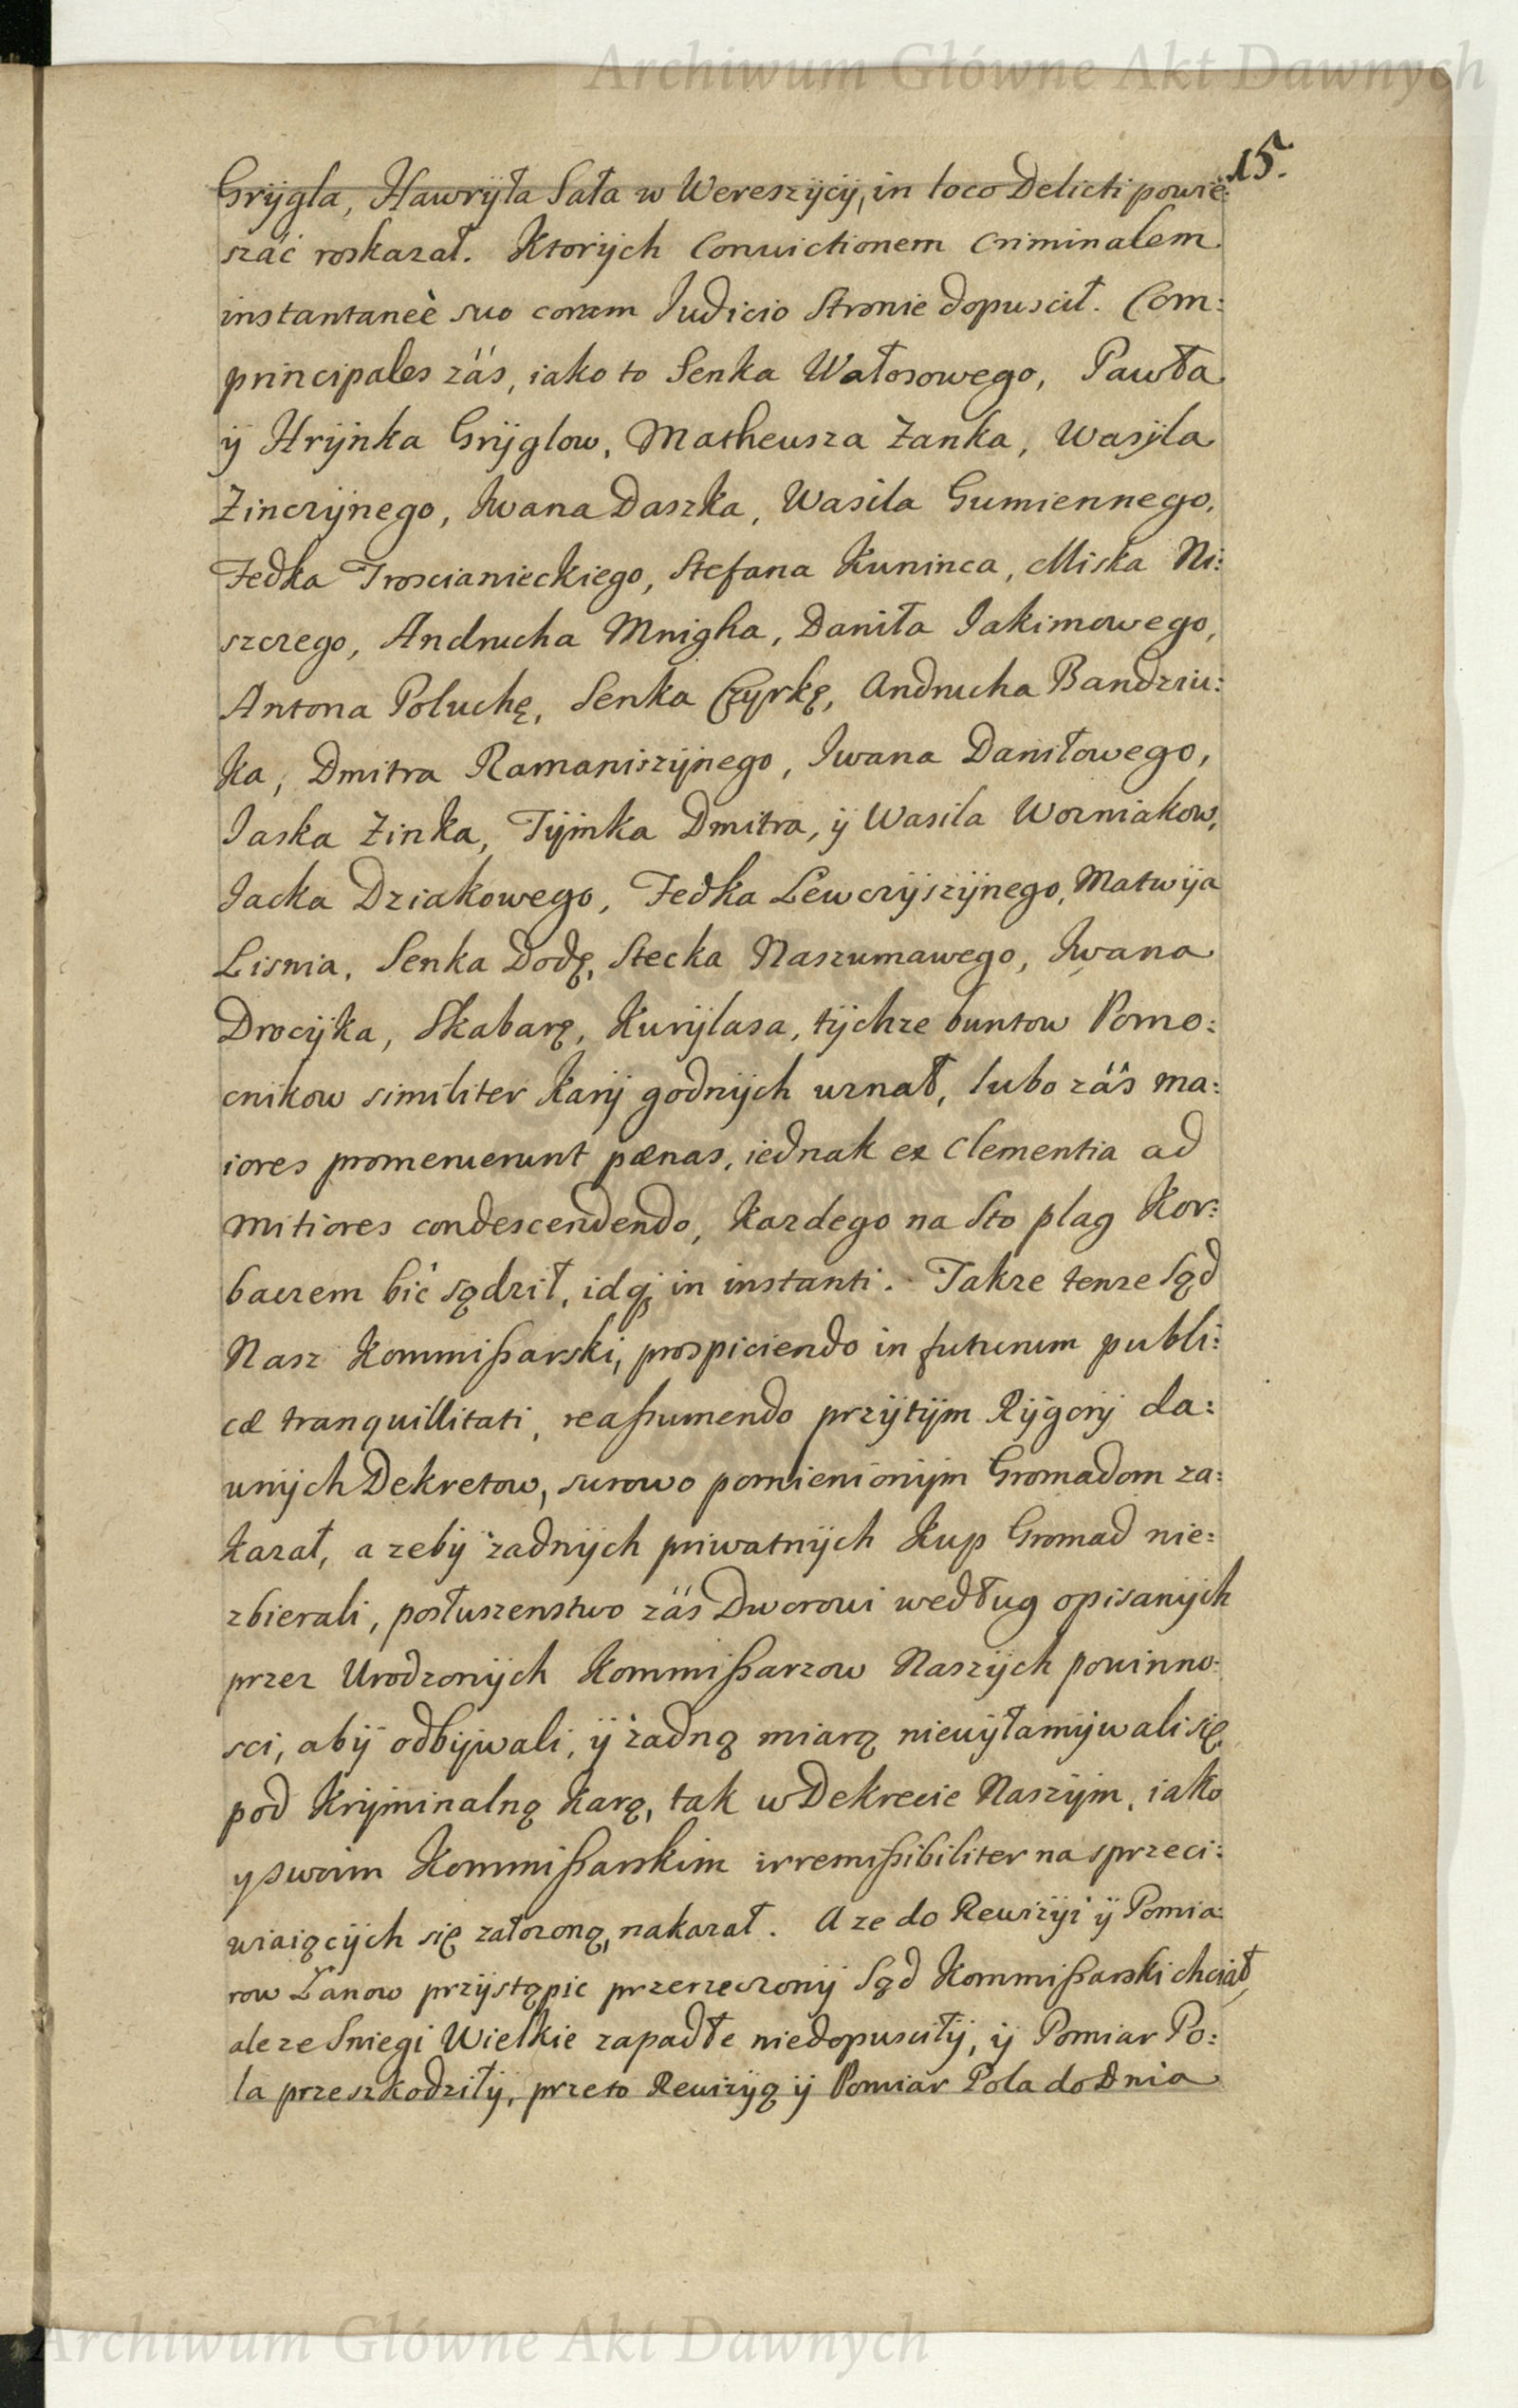 Archiwum Główne Akt Dawnych
15.
Grÿgla, Hawrÿła Sała w Wereszÿcÿ, in loco Delicti powie:
szać roskazał. Ktorÿch Convictionem Criminalem
instantaneè suo coram Iudicio Stronie dopuscił. Com:
principales zäs, iako to Senka Wałosowego, Pawła
ÿ Hrÿnka Grÿglow, Matheusza Zanka, Wasÿla
Zinczÿnego, Iwana Daszka, Wasila Gumiennego,
Fedka Troscianieckiego, Stefana Kuninca, Miska Ni:
szczego, Andrucha Mnigha, Daniła Iakimowego,
Antona Poluchę, Senka Czyrkę, Andrucha Bandziu:
ka, Dmitra Ramaniszÿnego, Iwana Daniłowego,
Iaska Zinka, Tÿmka Dmitra, ÿ Wasila Wozniakow,
Iacka Dziakowego, Fedka Lewczÿszÿnego, Matwija
Lisnia, Senka Dodę, Stecka Naszumawego, Iwana
Drocÿka, Skabarę, Kurÿlasa, tÿchze buntow Pomo:
cnikow similiter karÿ godnÿch uznał, lubo zäs ma:
iores promeruerunt pœnas, iednak ex Clementia ad
mitiores condescendendo, kazdego na Sto plag Kor:
baczem bić sądził, idq; in instanti. Takze tenze Sąd
Nasz Kommißarski, prospiciendo in futurum publi:
cæ tranquillitati, reaßumendo przÿtÿm Rÿgorÿ da:
wnÿch Dekretow, surowo pomienionÿm Gromadom za:
kazał, a zebÿ zadnÿch priwatnÿch Kup Gromad nie:
zbierali, posłuszenstwo zäs Dworowi według opisanÿch
przez Urodzonÿch Kommißarzow Naszÿch powinno:
sci, abÿ odbÿwali, ÿ zadną miarą niewÿłamÿwali się
pod Krÿminalną karą, tak w Dekrecie Naszÿm, iako
y swoim Kommißarskim irremißibiliter na sprzeci:
wiaiącÿch się załozoną, nakazał. A ze do Rewizÿi ÿ Pomia:
row Łanow przÿstąpic przerzeczonÿ Sąd Kommißarski chciał,
ale ze Sniegi Wielkie zapadłe niedopusciłÿ, ÿ Pomiar Po:
la przeszkodziłÿ, przeto Rewizÿą ÿ Pomiar Pola do Dnia
Archiwum Główne Akt Dawnych